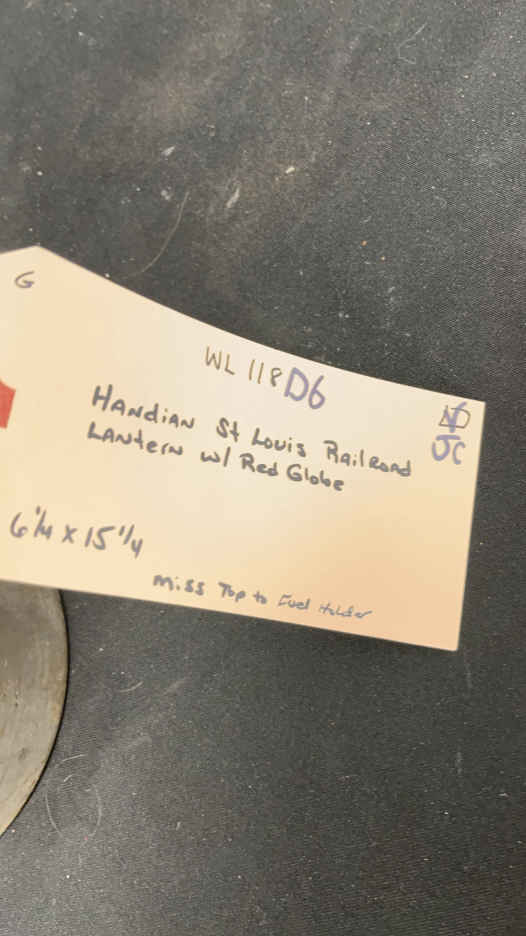 G
WL 118 D6
JC
HANdiAN St Louis RailRoad
LANterN w/ Red Globe
6 1/4 x 15 1/4
Miss Top to Fuel Holder